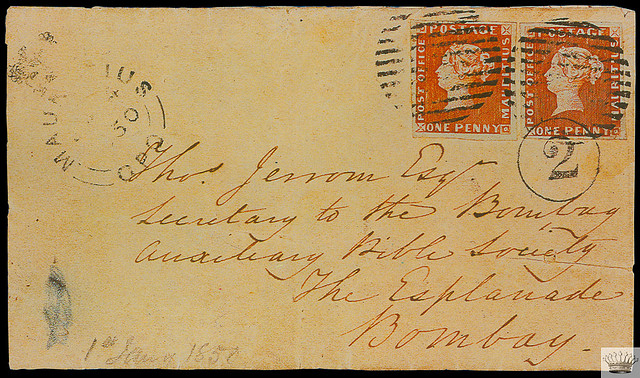 POSTAGE
POST OFFICE
MAURITIUS
ONE PENNY
POSTAGE
POST OFFICE
MAURITIUS
ONE PENNY
MAURITIUS
50
GPO
2
Thos. Jerrom Esqr.
Secretary to the Bombay
Auxiliary Bible Society
The Esplanade
Bombay.
1850